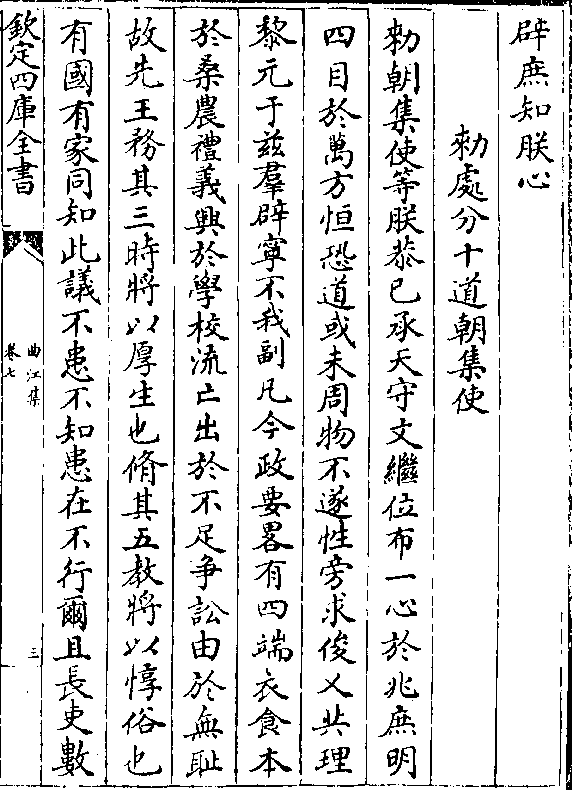 辟庶知朕心
勑處分十道朝集使
勑朝集使等朕恭已承天守文繼位布一心於兆庶明
四目於萬方恒恐道或未周物不遂性旁求俊乂共理
黎元于兹羣辟寜不我副凡今政要畧有四端衣食本
於桑農禮義興於學校流亡出於不足爭訟由於無耻
故先王務其三時將以厚生也脩其五教將以惇俗也
有國有家同知此議不患不知患在不行爾且長吏數
欽定四庫全書
曲江集
卷七
三